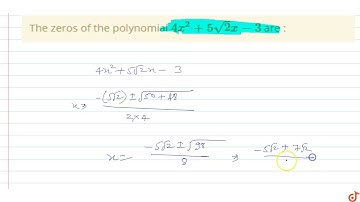 The zeros of the polynomial 4x² + 5√2x − 3 are :
4x²+5√2x − 3
x⇒ −(5√2) ± √50+48 / 2×4
x = −5√2 ± √98 / 8 ⇒ −5√2 ± 7√2